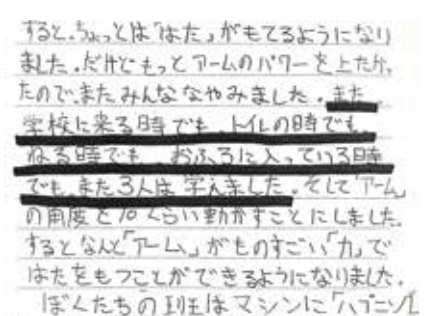 すると、ちょっとは「はた」がもてるようになり
ました。だけどもっとアームのパワーを上たか
たので、またみんななやみました。また
学校に来る時でも、トイレの時でも、
ねる時でも、おふろに入っている時
でも、また3人は学えました。そして「アーム」
の角度を10くらい動かすことにしました。
するとなんと「アーム」がものすごい「力」で
はたをもつことができるようになりました。
ぼくたちの班はマシンに「ハプニング